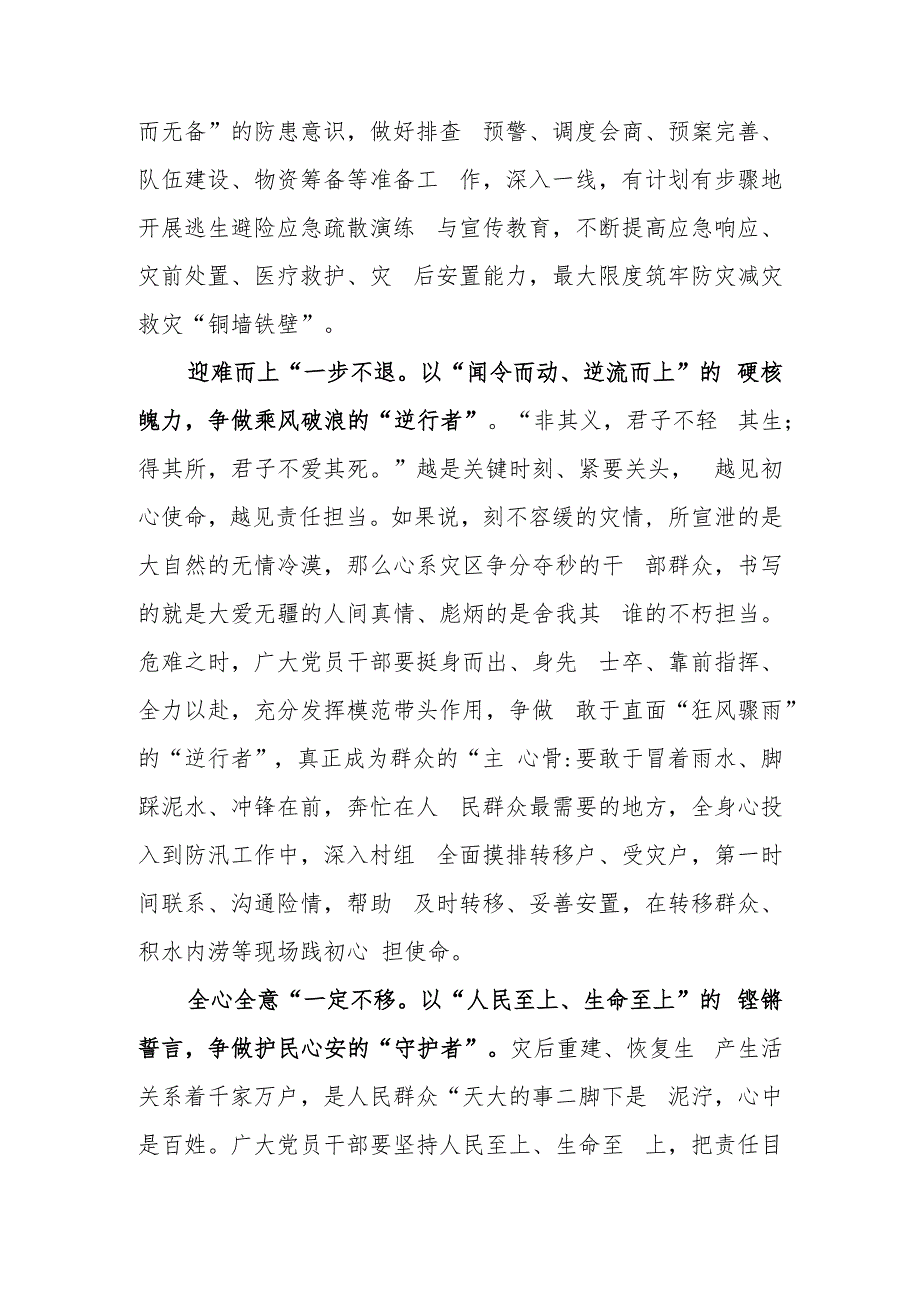 而无备”的防患意识，做好排查 预警、调度会商、预案完善、
队伍建设、物资筹备等准备工 作，深入一线，有计划有步骤地
开展逃生避险应急疏散演练 与宣传教育，不断提高应急响应、
灾前处置、医疗救护、灾 后安置能力，最大限度筑牢防灾减灾
救灾“铜墙铁壁”。
迎难而上“一步不退。以“闻令而动、逆流而上”的 硬核
魄力，争做乘风破浪的“逆行者”。“非其义，君子不轻 其生；
得其所，君子不爱其死。”越是关键时刻、紧要关头， 越见初
心使命，越见责任担当。如果说，刻不容缓的灾情，所宣泄的是
大自然的无情冷漠，那么心系灾区争分夺秒的干 部群众，书写
的就是大爱无疆的人间真情、彪炳的是舍我其 谁的不朽担当。
危难之时，广大党员干部要挺身而出、身先 士卒、靠前指挥、
全力以赴，充分发挥模范带头作用，争做 敢于直面“狂风骤雨”
的“逆行者”，真正成为群众的“主 心骨:要敢于冒着雨水、脚
踩泥水、冲锋在前，奔忙在人 民群众最需要的地方，全身心投
入到防汛工作中，深入村组 全面摸排转移户、受灾户，第一时
间联系、沟通险情，帮助 及时转移、妥善安置，在转移群众、
积水内涝等现场践初心 担使命。
全心全意“一定不移。以“人民至上、生命至上”的 铿锵
誓言，争做护民心安的“守护者”。灾后重建、恢复生 产生活
关系着千家万户，是人民群众“天大的事二脚下是 泥泞，心中
是百姓。广大党员干部要坚持人民至上、生命至 上，把责任目